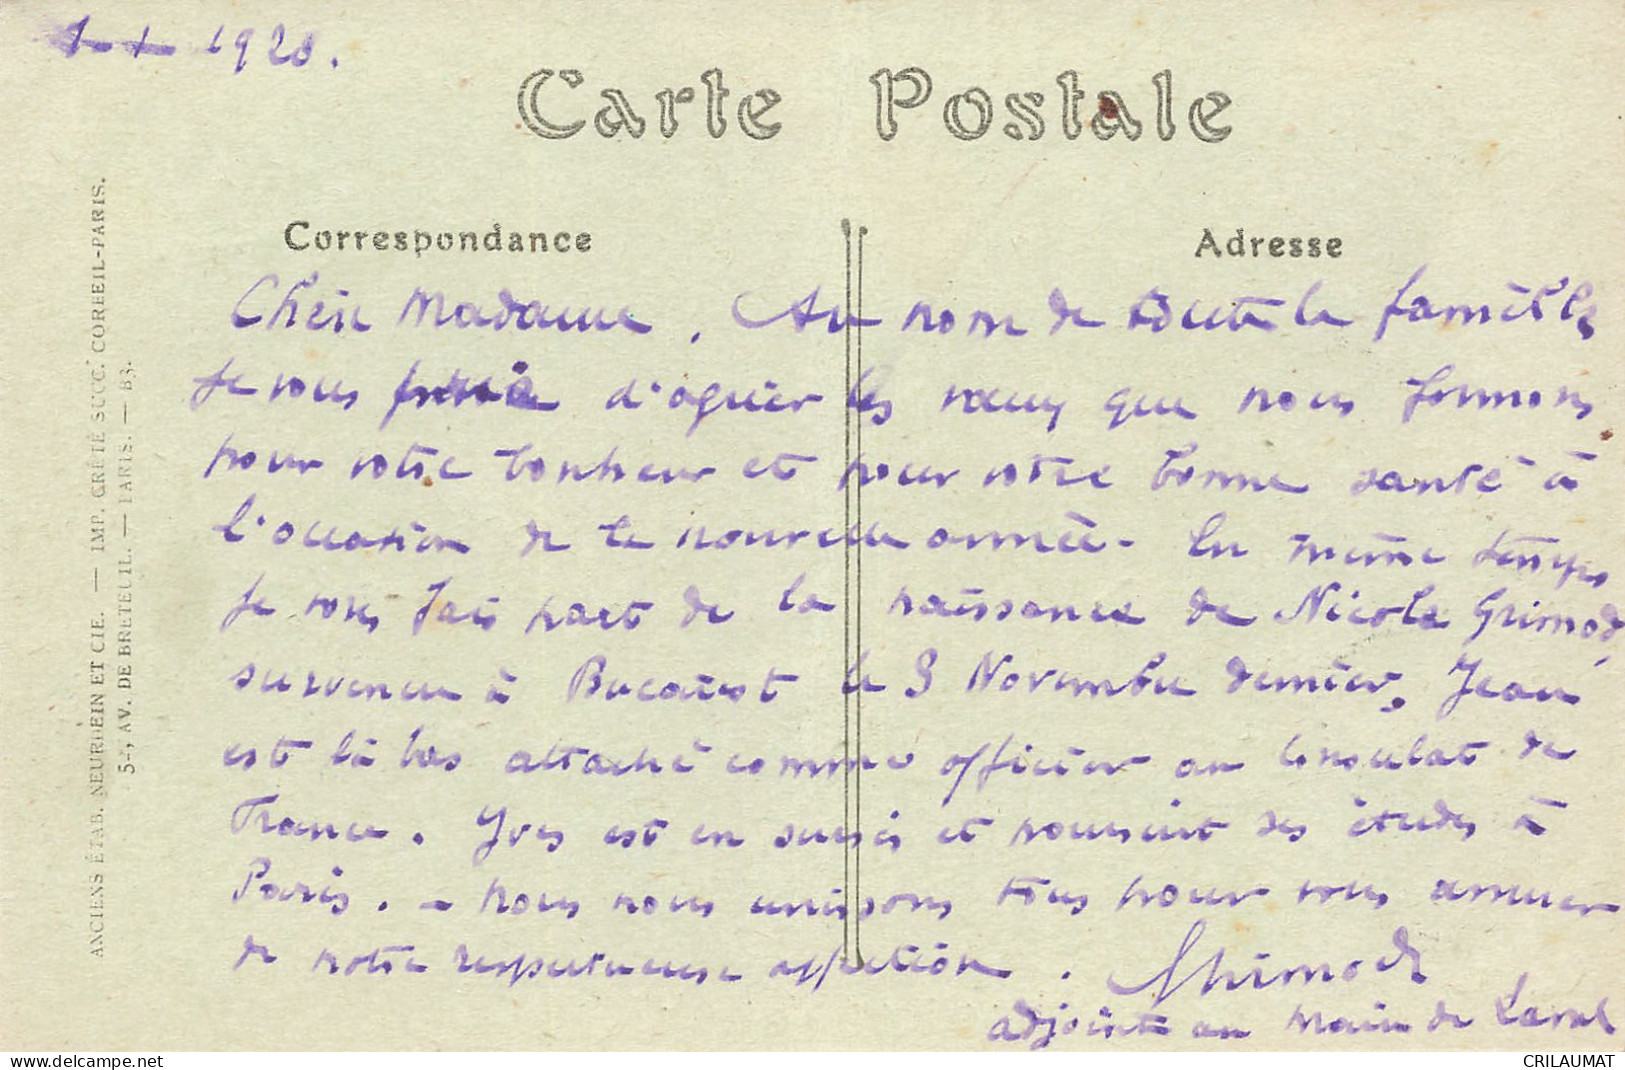 1-1-1928.
Carte Postale
Correspondance
Adresse
Chère Madame, Au nom de toute la famille
je vous prie d'agréer les vœux que nous formons
pour votre bonheur et pour votre bonne santé à
l'occasion de la nouvelle année. En même temps
je vous fais part de la naissance de Nicole Grimod,
survenue à Bucarest le 3 Novembre dernier, Jean
est là bas attaché comme officier au Consulat de
France. Yves est en sursis et poursuit ses études à
Paris. - Nous nous unissons tous pour vous assurer
de notre respectueuse affection. Grimod
adjoint au maire de Laval
ANCIENS ÉTAB. NEURDEIN ET CIE. — IMP. CRÉTÉ SUCC. CORBEIL-PARIS.
52, AV. DE BRETEUIL. — PARIS. — B3.
www.delcampe.net
CRILAUMAT